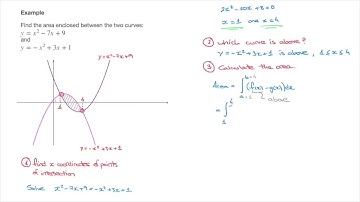 Example
Find the area enclosed between the two curves:
y = x² − 7x + 9
and
y = −x² + 3x + 1
y=x²-7x+9
1
4
y=-x²+3x+1
① find x coordinates of points
of intersection
Solve x²-7x+9=-x²+3x+1
2x²-10x+8=0
x=1 or x=4
② Which curve is above?
y=-x²+3x+1 is above, 1≤x≤4
③ Calculate the area
Area = ∫ (f(x)-g(x))dx
b=4
a=1
above
= ∫
4
1